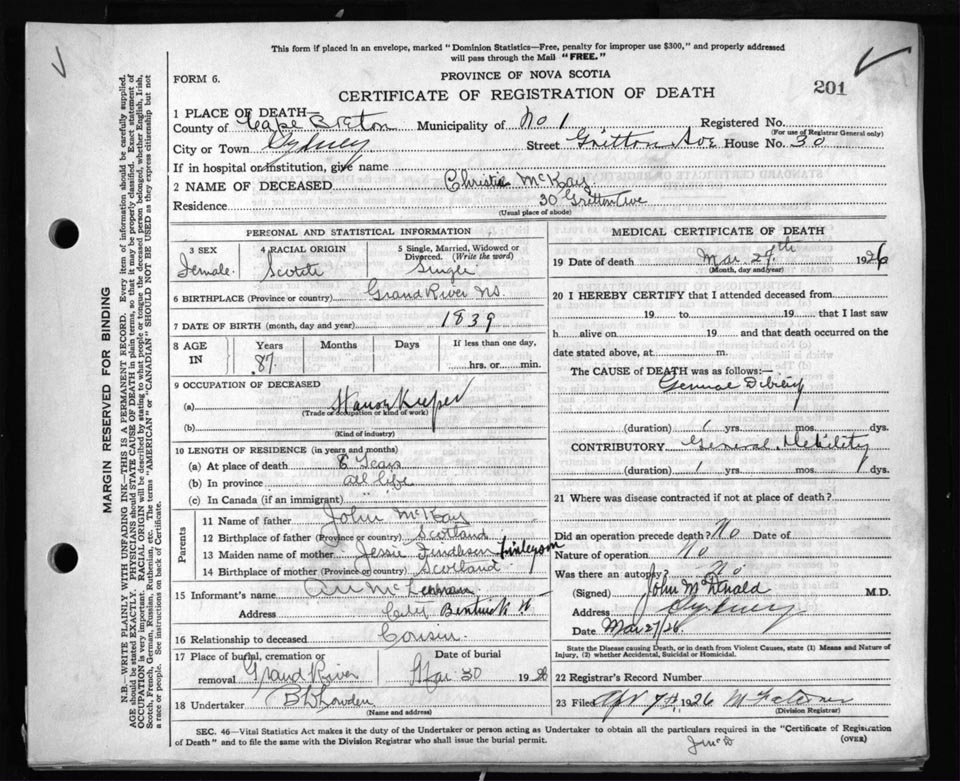 This form if placed in an envelope, marked "Dominion Statistics—Free, penalty for improper use $300," and properly addressed
will pass through the Mail "FREE."
FORM 6.
PROVINCE OF NOVA SCOTIA
201
CERTIFICATE OF REGISTRATION OF DEATH
1 PLACE OF DEATH—
County of Cape Breton Municipality of No 1 Registered No.
(For use of Registrar General only)
City or Town Sydney Street Gritton Ave House No. 30
If in hospital or institution, give name
2 NAME OF DECEASED Christie McKay
Residence 30 Gritton Ave
(Usual place of abode)
PERSONAL AND STATISTICAL INFORMATION
3 SEX 4 RACIAL ORIGIN 5 Single, Married, Widowed or
Divorced. (Write the word)
Female Scotch Single
6 BIRTHPLACE (Province or country) Grand River NS.
7 DATE OF BIRTH (month, day and year) 1839
8 AGE IN Years Months Days If less than one day,
87 hrs. or min.
9 OCCUPATION OF DECEASED
(a) Keeper
(Trade or occupation or kind of work)
(b)
(Kind of industry)
10 LENGTH OF RESIDENCE (in years and months)
(a) At place of death 6 Years
(b) In province all life
(c) In Canada (if an immigrant) " "
Parents
11 Name of father John McKay
12 Birthplace of father (Province or country) Scotland
13 Maiden name of mother Jessie Finleyson
14 Birthplace of mother (Province or country) Scotland
15 Informant's name
Address Bentinck St
16 Relationship to deceased Cousin.
17 Place of burial, cremation or Date of burial
removal Grand River Mar 30 1926
18 Undertaker
(Name and address)
MEDICAL CERTIFICATE OF DEATH
19 Date of death Mar 27th 1926
(Month, day and year)
20 I HEREBY CERTIFY that I attended deceased from
19 to 19 that I last saw
h alive on 19 and that death occurred on the
date stated above, at m.
The CAUSE of DEATH was as follows:—
General Debility
(duration) 1 yrs. mos. dys.
CONTRIBUTORY General Debility
(duration) 1 yrs. mos. dys.
21 Where was disease contracted if not at place of death?
Did an operation precede death? No Date of
Nature of operation No
Was there an autopsy? No
(Signed) John McDonald M.D.
Address Sydney
Date Mar 27/26
State the Disease causing Death, or in death from Violent Causes, state (1) Means and Nature of
Injury, (2) whether Accidental, Suicidal or Homicidal.
22 Registrar's Record Number
23 Filed Apr 7th 1926
(Division Registrar)
SEC. 46—Vital Statistics Act makes it the duty of the Undertaker or person acting as Undertaker to obtain all the particulars required in the "Certificate of Registration
of Death" and to file the same with the Division Registrar who shall issue the burial permit.
(OVER)
MARGIN RESERVED FOR BINDING
N.B.—WRITE PLAINLY WITH UNFADING INK—THIS IS A PERMANENT RECORD. Every item of information should be carefully supplied.
AGE should be stated EXACTLY. PHYSICIANS should STATE CAUSE OF DEATH in plain terms, so that it may be properly classified. Exact statement of
OCCUPATION is very important. RACIAL ORIGIN will be described by stating to what people or tongue the deceased person belonged, whether English, Irish,
Scotch, French, German, Russian, Ruthenian, etc. The terms "AMERICAN" or "CANADIAN" SHOULD NOT BE USED as they express citizenship but not
a race or people. See instructions on back of Certificate.